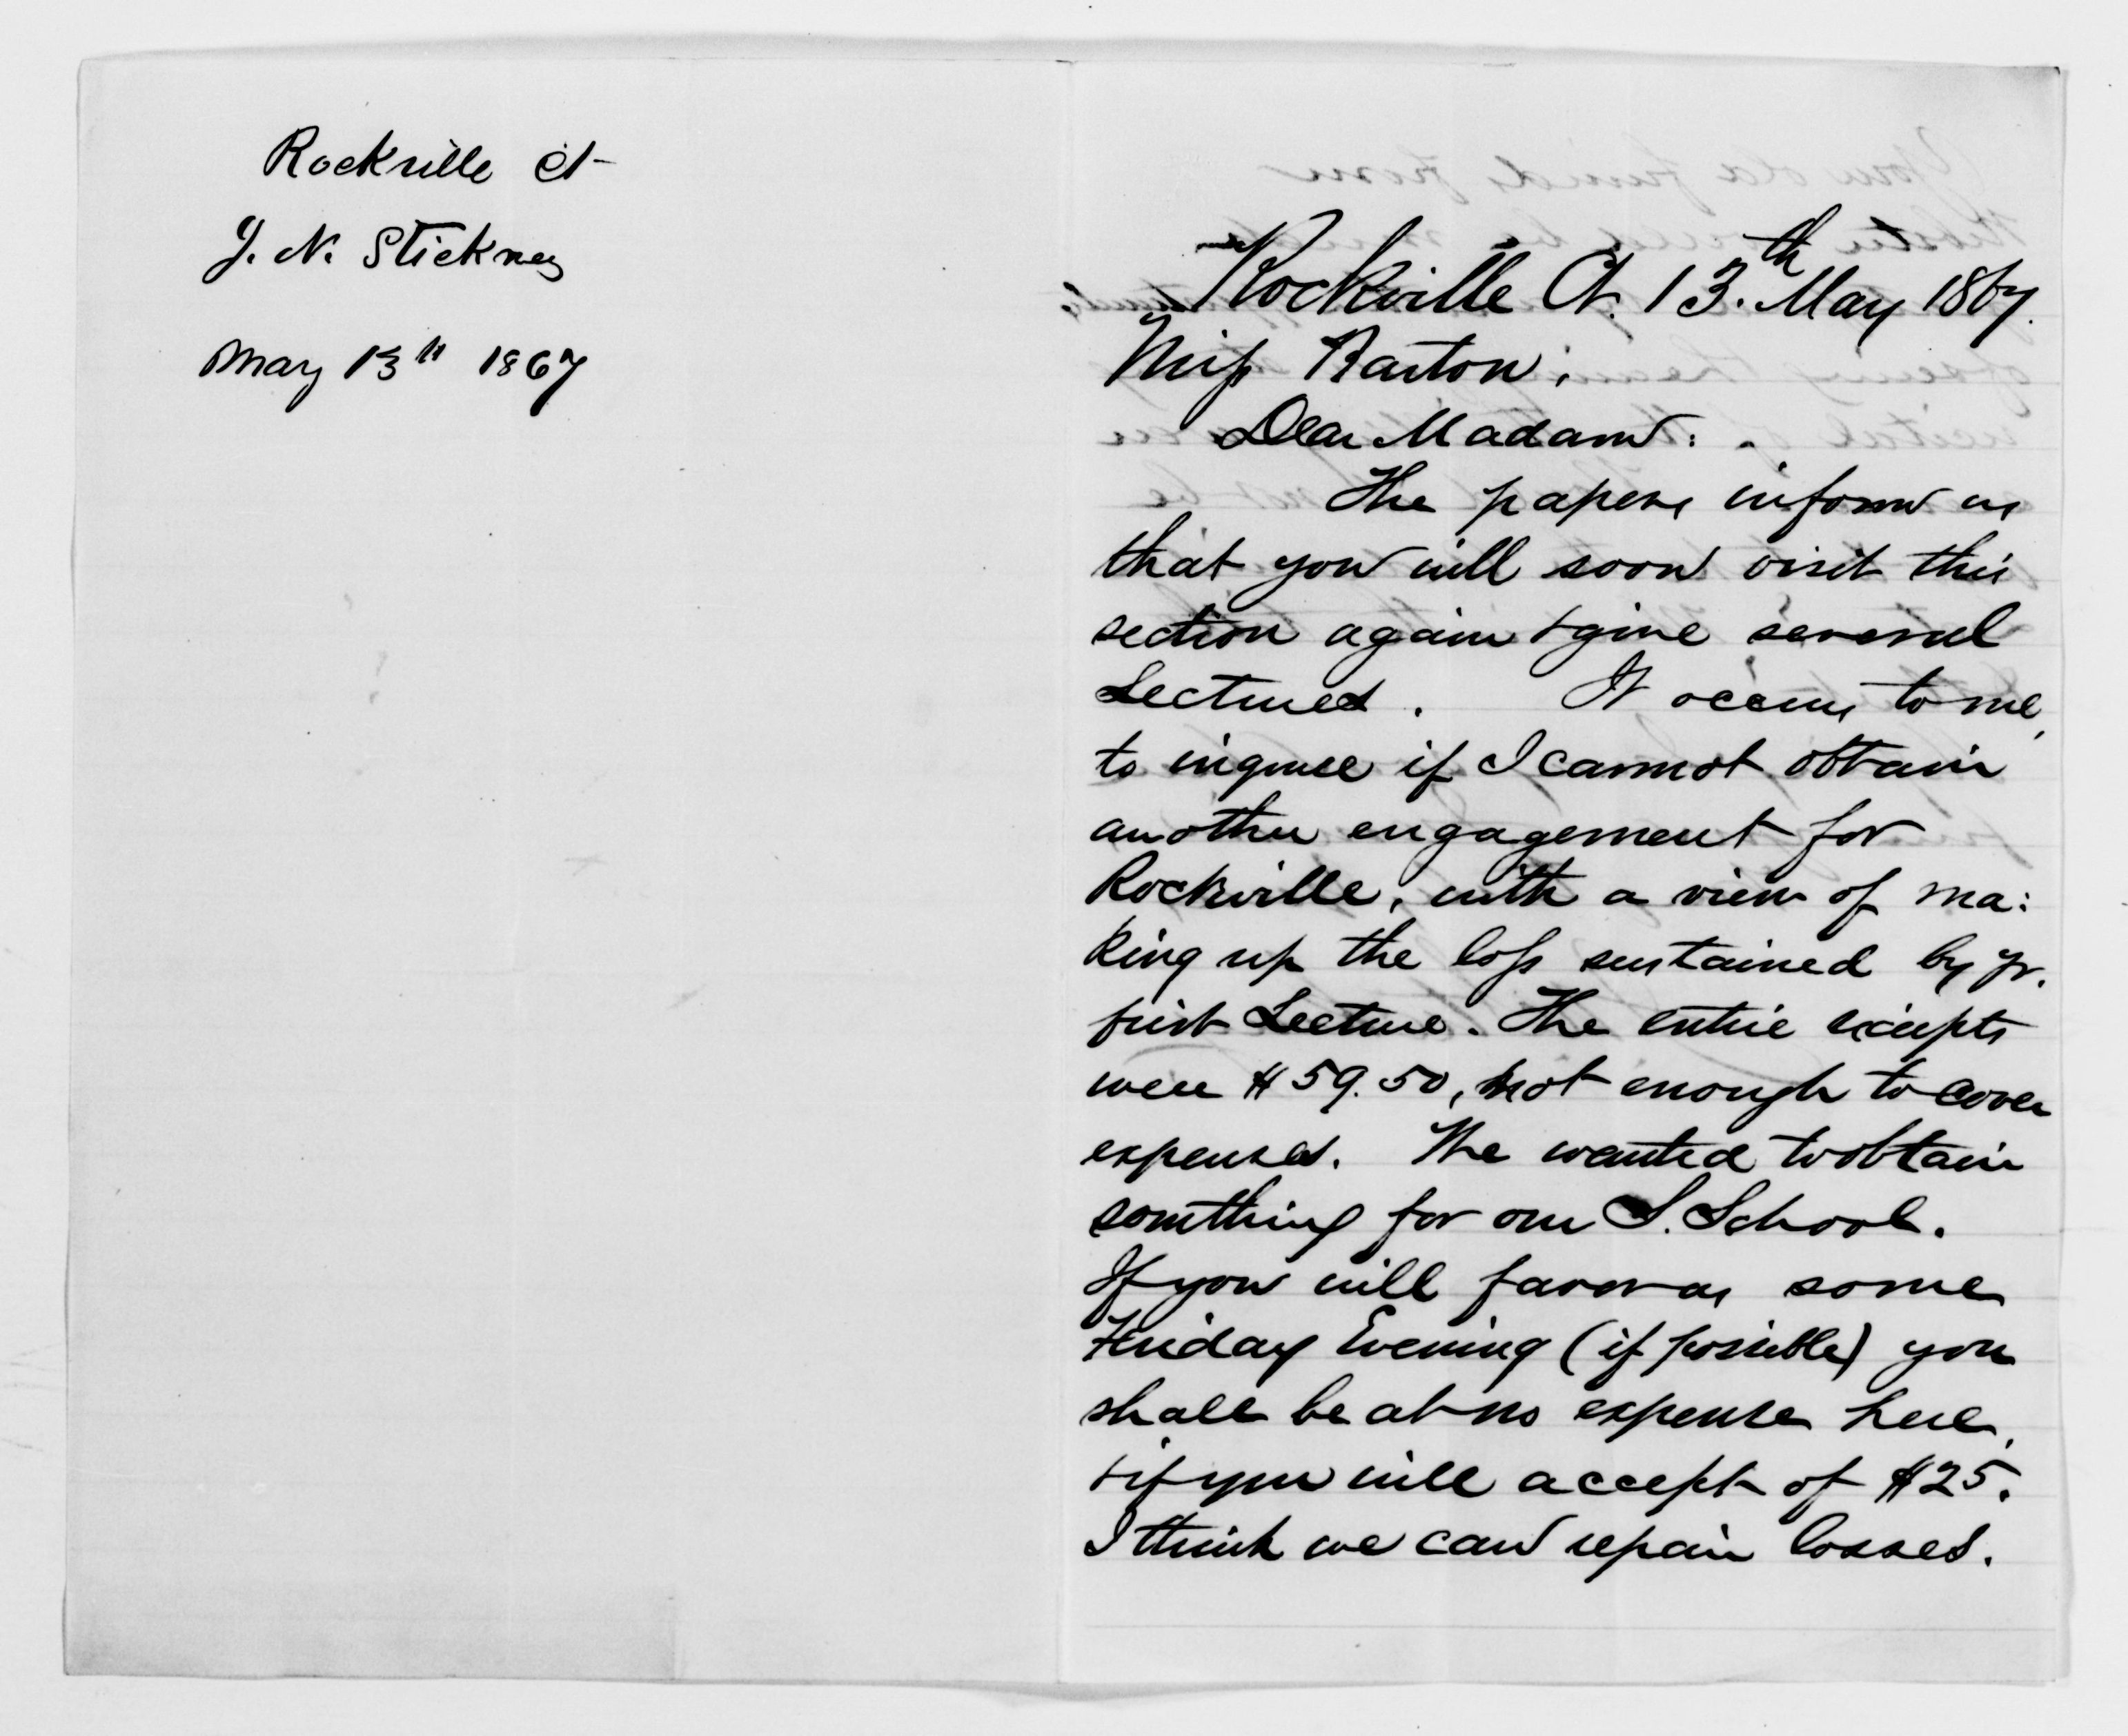 Rockville Ct
J. N. Stickney
May 13th 1867
Rockville Ct. 13th May 1867.
Miss Barton;
Dear Madam:
The papers inform us
that you will soon visit this
section again & give several
Lectures. It occurs to me,
to inquire if I cannot obtain
another engagement for
Rockville, with a view of ma:
king up the loss sustained by yr.
first Lecture. The entire receipts
were $59.50, not enough to cover
expenses. We wanted to obtain
something for our S. School.
If you will favor us some
Friday Evening (if possible) you
shall be at no expense here,
& if you will accept of $25.
I think we can repair losses.